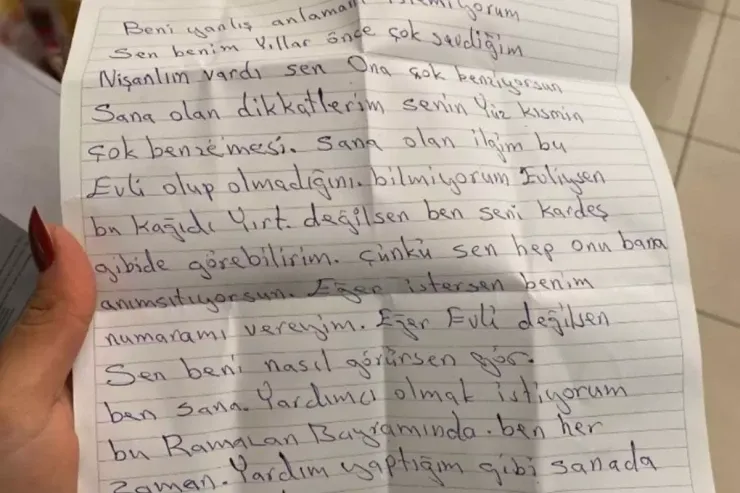 Beni yanlış anlamanı istemiyorum
Sen benim Yıllar önce çok sevdiğim
Nişanlım vardı sen Ona çok benziyorsun
Sana olan dikkatlerim senin Yüz kısmin
çok benzemesi. Sana olan ilgim bu
Evli olup olmadığını. bilmiyorum Evliysen
bu Kağıdı Yırt. değilsen ben seni kardeş
gibide görebilirim. Çünkü sen hep onu bana
anımsıtıyorsun. Eğer istersen benim
numaramı vereyim. Eğer Evli değilsen
Sen beni nasıl görürsen gör.
ben sana. Yardımcı olmak istiyorum
bu Ramazan Bayramında. ben her
zaman. Yardım yaptığım gibi sanada